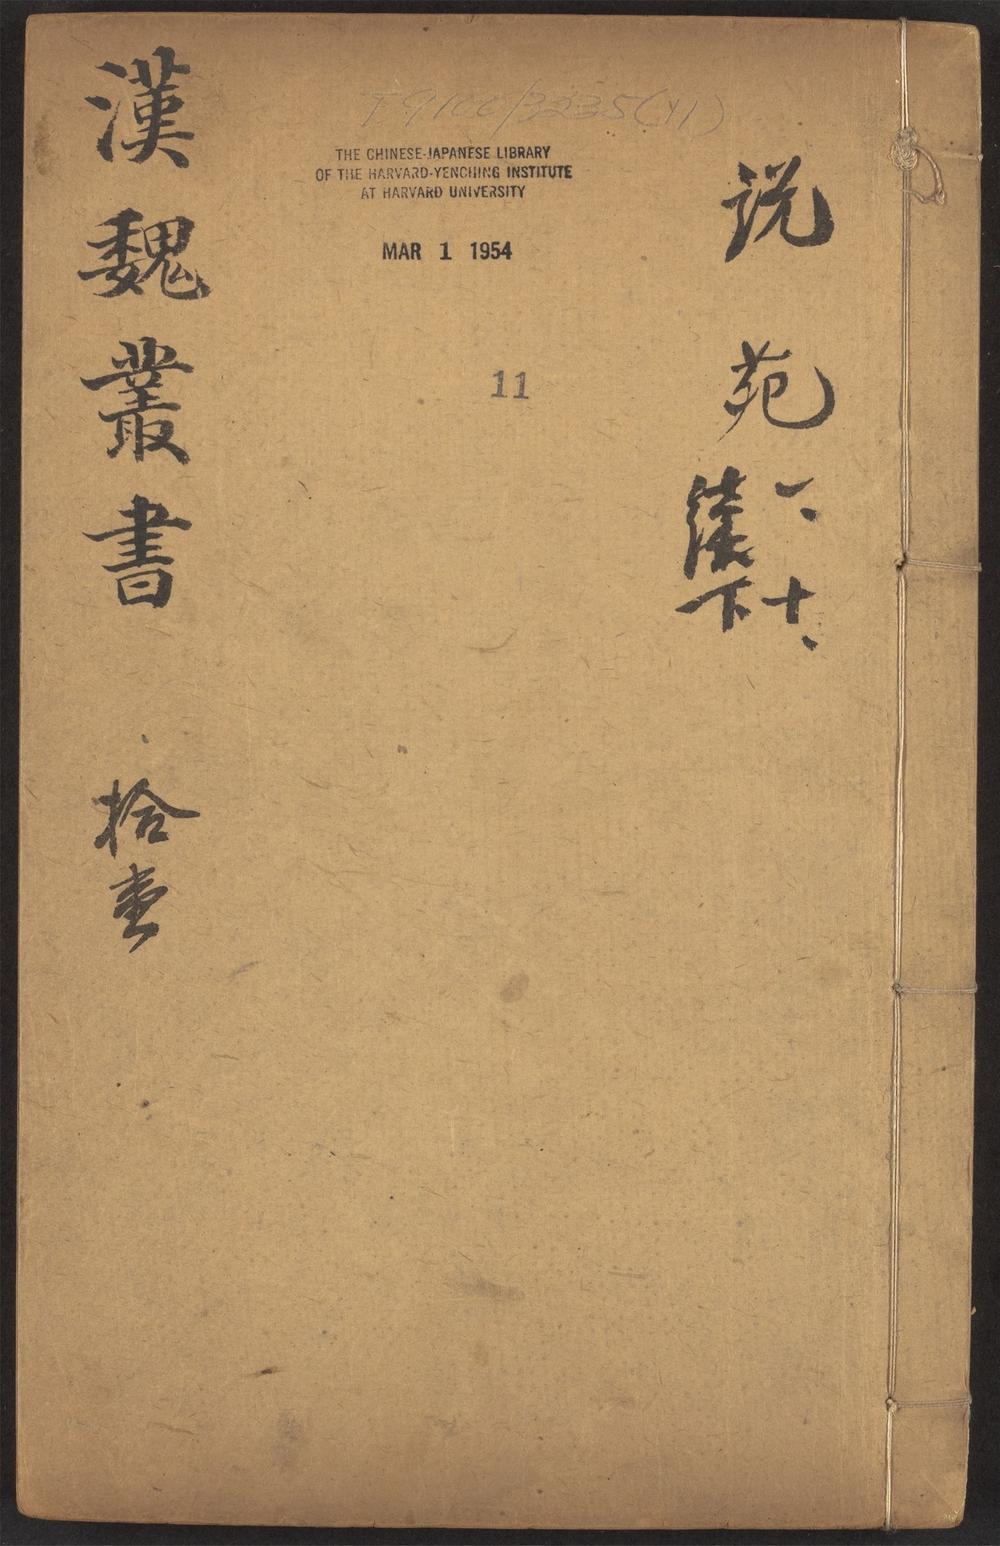 T 9100/3235(11)
THE CHINESE-JAPANESE LIBRARY
OF THE HARVARD-YENCHING INSTITUTE
AT HARVARD UNIVERSITY
MAR 1 1954
11
説苑
一、十、
下
漢魏叢書 拾壹